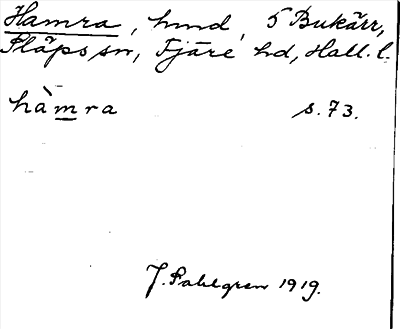 Hamra, hmd, 5 Bukärr,
Släps sn, Fjäre hd, Hall. l.
hàmra s. 73.
J. Sahlgren 1919.